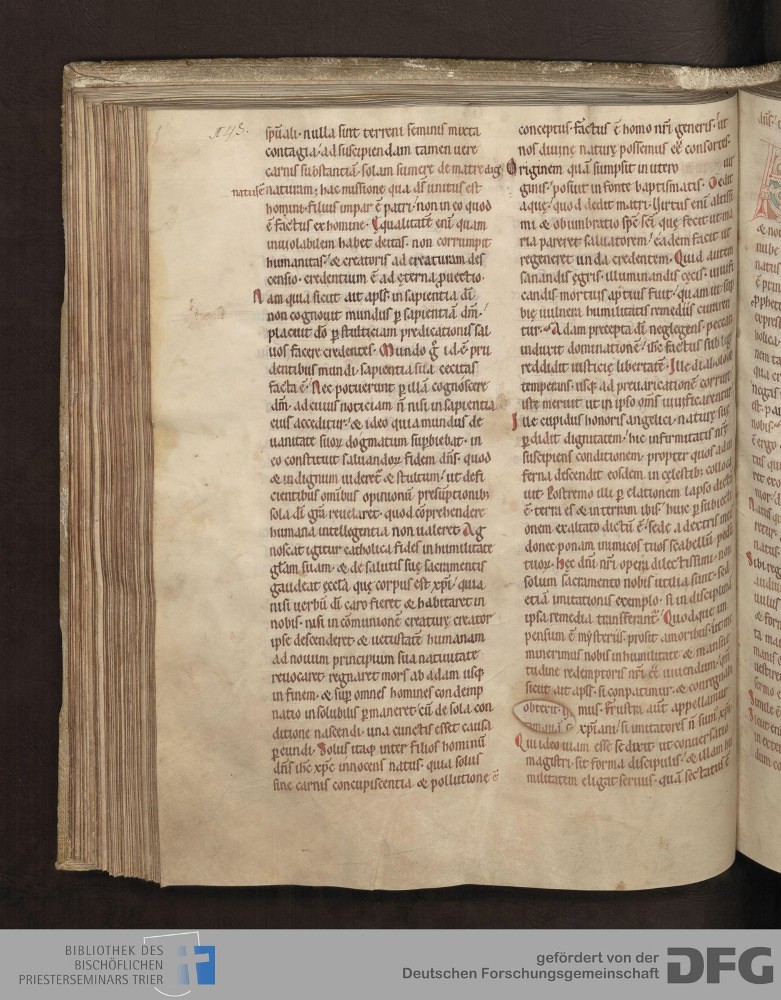 143.
sp̄uali· nulla sint terreni seminis mixta
contagia/ ad suscipiendam tamen uere
carnis substantiā· solam sumere de matre dig
natus ē naturam; hac missione qua d̄s unitus est
homini· filius impar ē patri/ non in eo quod
ē factus ex homine· Equalitatē enī quam
inuiolabilem habet deitas· non corrumpit
humanitas/ & creatoris ad creaturam des
censio· credentium ē ad ęterna puectio·
Nam quia sicut ait apl̄s in sapientia dī
non cognouit mundus p sapientiā dm̄/
placuit dō p stulticiam predicationis sal
uos facere credentes· Mundo g̊ id ē pru
dentibus mundi· sapientia sua cecitas
facta ē· Nec potuerunt p illā cognoscere
dm̄· ad cuius noticiam n̄ nisi in sapientia
eius acceditur/ & ideo quia mundus de
uanitate suoꝝ dogmatum supbiebat· in
eo constituit saluandoꝝ fidem dn̄s· quod
& indignum uideret̄ & stultum/ ut defi
cientibus omībus opinionū presūptionib;
sola dī grā reuelaret· quod cōprehendere
humana intellegentia non ualeret· Ag
noscat igitur catholica fides in humilitate
glam̄ suam· & de salutis suę sacramentis
gaudeat eccl̄a quę corpus est xp̄i/ quia
nisi uerbū dī caro fieret & habitaret in
nobis· nisi in cōmunionē creaturę creator
ipse descenderet· & uetustatē humanam
ad nouum principium sua natiuitate
reuocaret· regnaret mors ab adam usq;
in finem· & sup omnes homines condemp
natio insolubilis pmaneret/ cū de sola con
ditione nascendi· una cunctis esset causa
pereundi· Solus itaq; inter filios hominū
dn̄s ih̄c xp̄c innocens natus· quia solus
sine carnis concupiscentia & pollutione ē
conceptus· factus ē homo nr̄i generis/ ut
nos diuinę naturę possemus eē consortes·
Originem quā sumpsit in utero uir
ginis/ posuit in fonte baptismatis· Dedit
aquę/ quod dedit matri· Uirtus enī altissi
mi & obumbratio sp̄c sc̄i quę fecit ut ma
ria pareret saluatorem/ eadem facit ut
regeneret unda credentem· Quid autem
sanandis ęgris· illuminandis cęcis· uiuifi
candis mortuis aptius fuit/ quam ut sup
bię uulnera humilitatis remediis curaren
tur· Adam precepta dī neglegens· peccati
induxit dominationē/ ih̄c factus sub lege
reddidit iusticię libertatē· Ille diabolo ob
temperans· usq; ad preuaricationē corruit
iste meruit ut in ipso om̄s uiuificarentur
Ille cupidus honoris angelici· naturę suę
pdidit dignitatem/ hic infirmitatis nr̄ę
suscipiens conditionem· propter quos ad in
ferna descendit eosdem in cęlestib; colloca
uit· Postremo illi p elationem lapso dictū
ē· terra es & in terram ibis/ huic p subiecti
onem exaltato dictū ē/ sede a dextris meis
donec ponam inimicos tuos scabellū pedū
tuoꝝ· Hęc dn̄i nr̄i opera dilectissimi· non
solum sacramento nobis utilia sunt· sed
etiā imitationis exemplo· si in disciplinā
ipsa remedia transferant̄/ Quodque im
pensum ē mysteriis· prosit amoribus· ut me
minerimus nobis in humilitate & mansue
tudine redemptoris nr̄i eē uiuendum· qm̄
sicut ait apl̄s· si conpatimur· & conregnabi
mus· Frustra aūt appellamur
xp̄iani/ si imitatores n̄ sum᷒ xp̄i·
Qui ideo uiam esse se dixit· ut conuersatio
magistri· sit forma discipulis/ & illam hu
militatem eligat seruus· quā sectatus ē
BIBLIOTHEK DES
BISCHÖFLICHEN
PRIESTERSEMINARS TRIER
gefördert von der
Deutschen Forschungsgemeinschaft
DFG